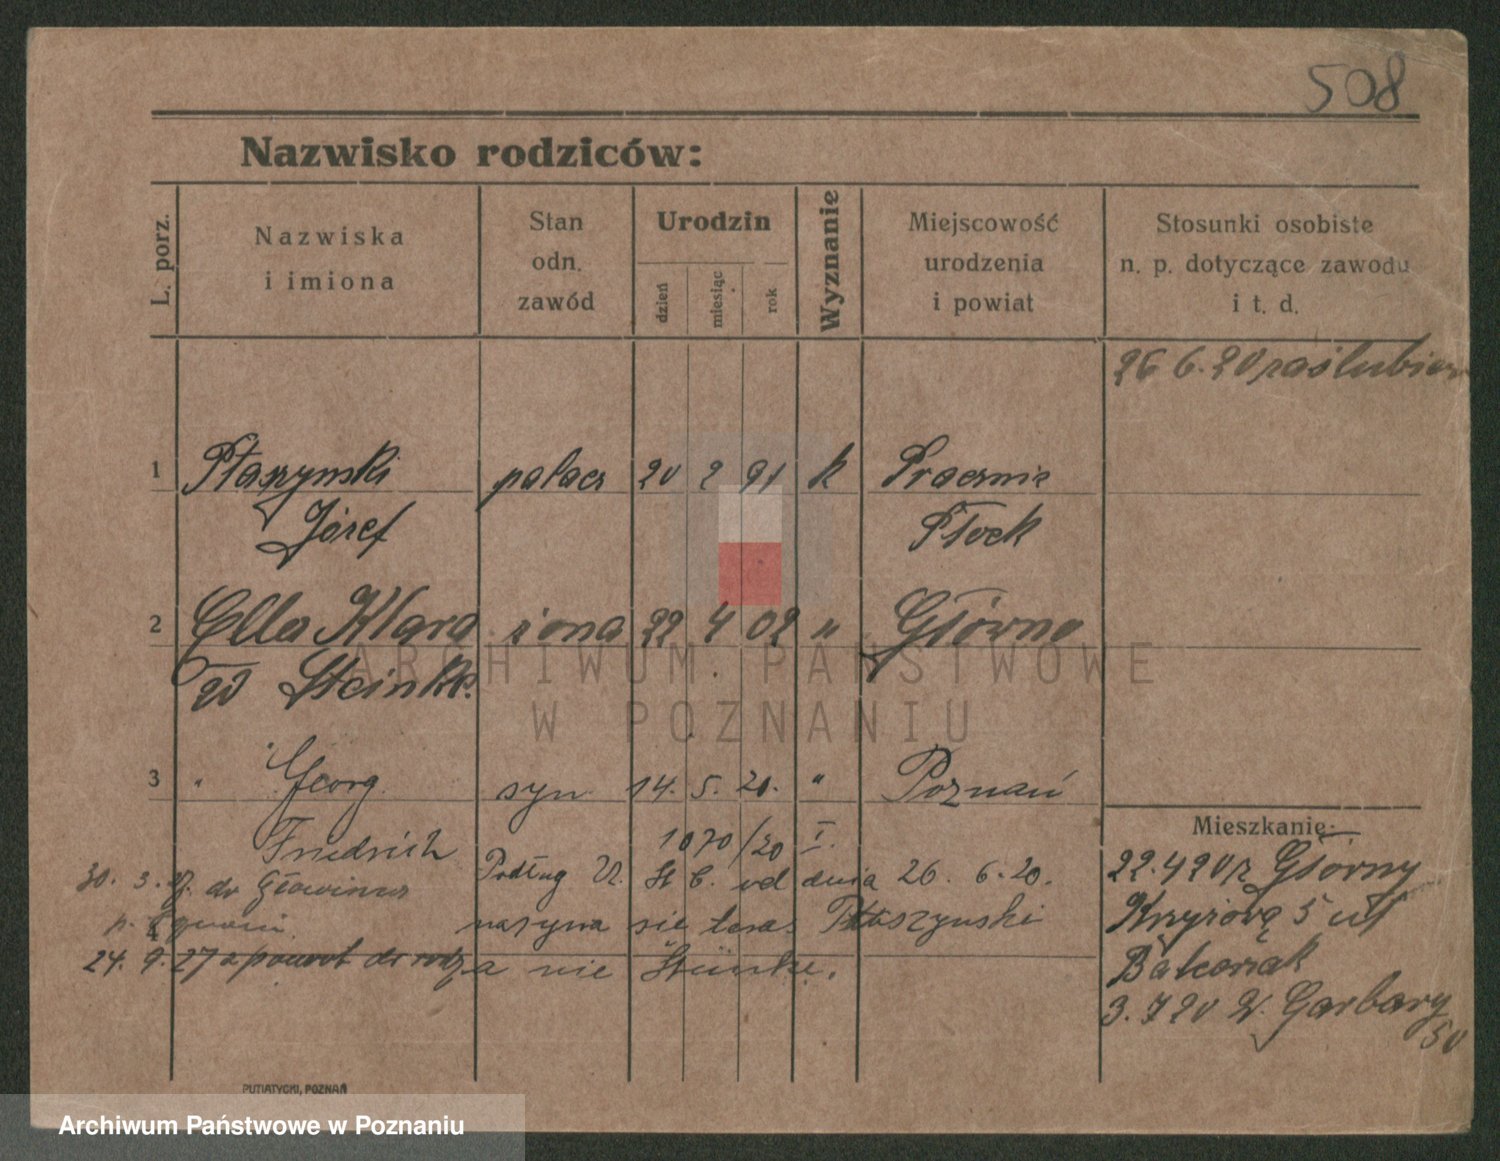 508
Nazwisko rodziców:
L. porz.
Nazwiska
i imiona
Stan
odn.
zawód
Urodzin
dzień
miesiąc
rok
Wyznanie
Miejscowość
urodzenia
i powiat
Stosunki osobiste
n. p. dotyczące zawodu
i t. d.
26 6. 20 zaślubien
1 Ptaszynski palacz 20 2 91 k
Józef Płock
2 Ella Klara żona 22 4 02 " Główno
zd Steinke
3 " Georg syn 14. 5. 20. " Poznań
Friedrich 1070/20 I.
Mieszkanie:
30. 3. do Podług U. St C. od dnia 26. 6. 20.
22. 4 20 z Główny
nazywa sie teraz Ptaszynski
Krzyżową 5 u
24. 9. 27 z powrot do rodz a nie Steinke.
3. 7 20 W. Garbary
50
PUTIATYCKI, POZNAŃ
ARCHIWUM PAŃSTWOWE
W POZNANIU
Archiwum Państwowe w Poznaniu